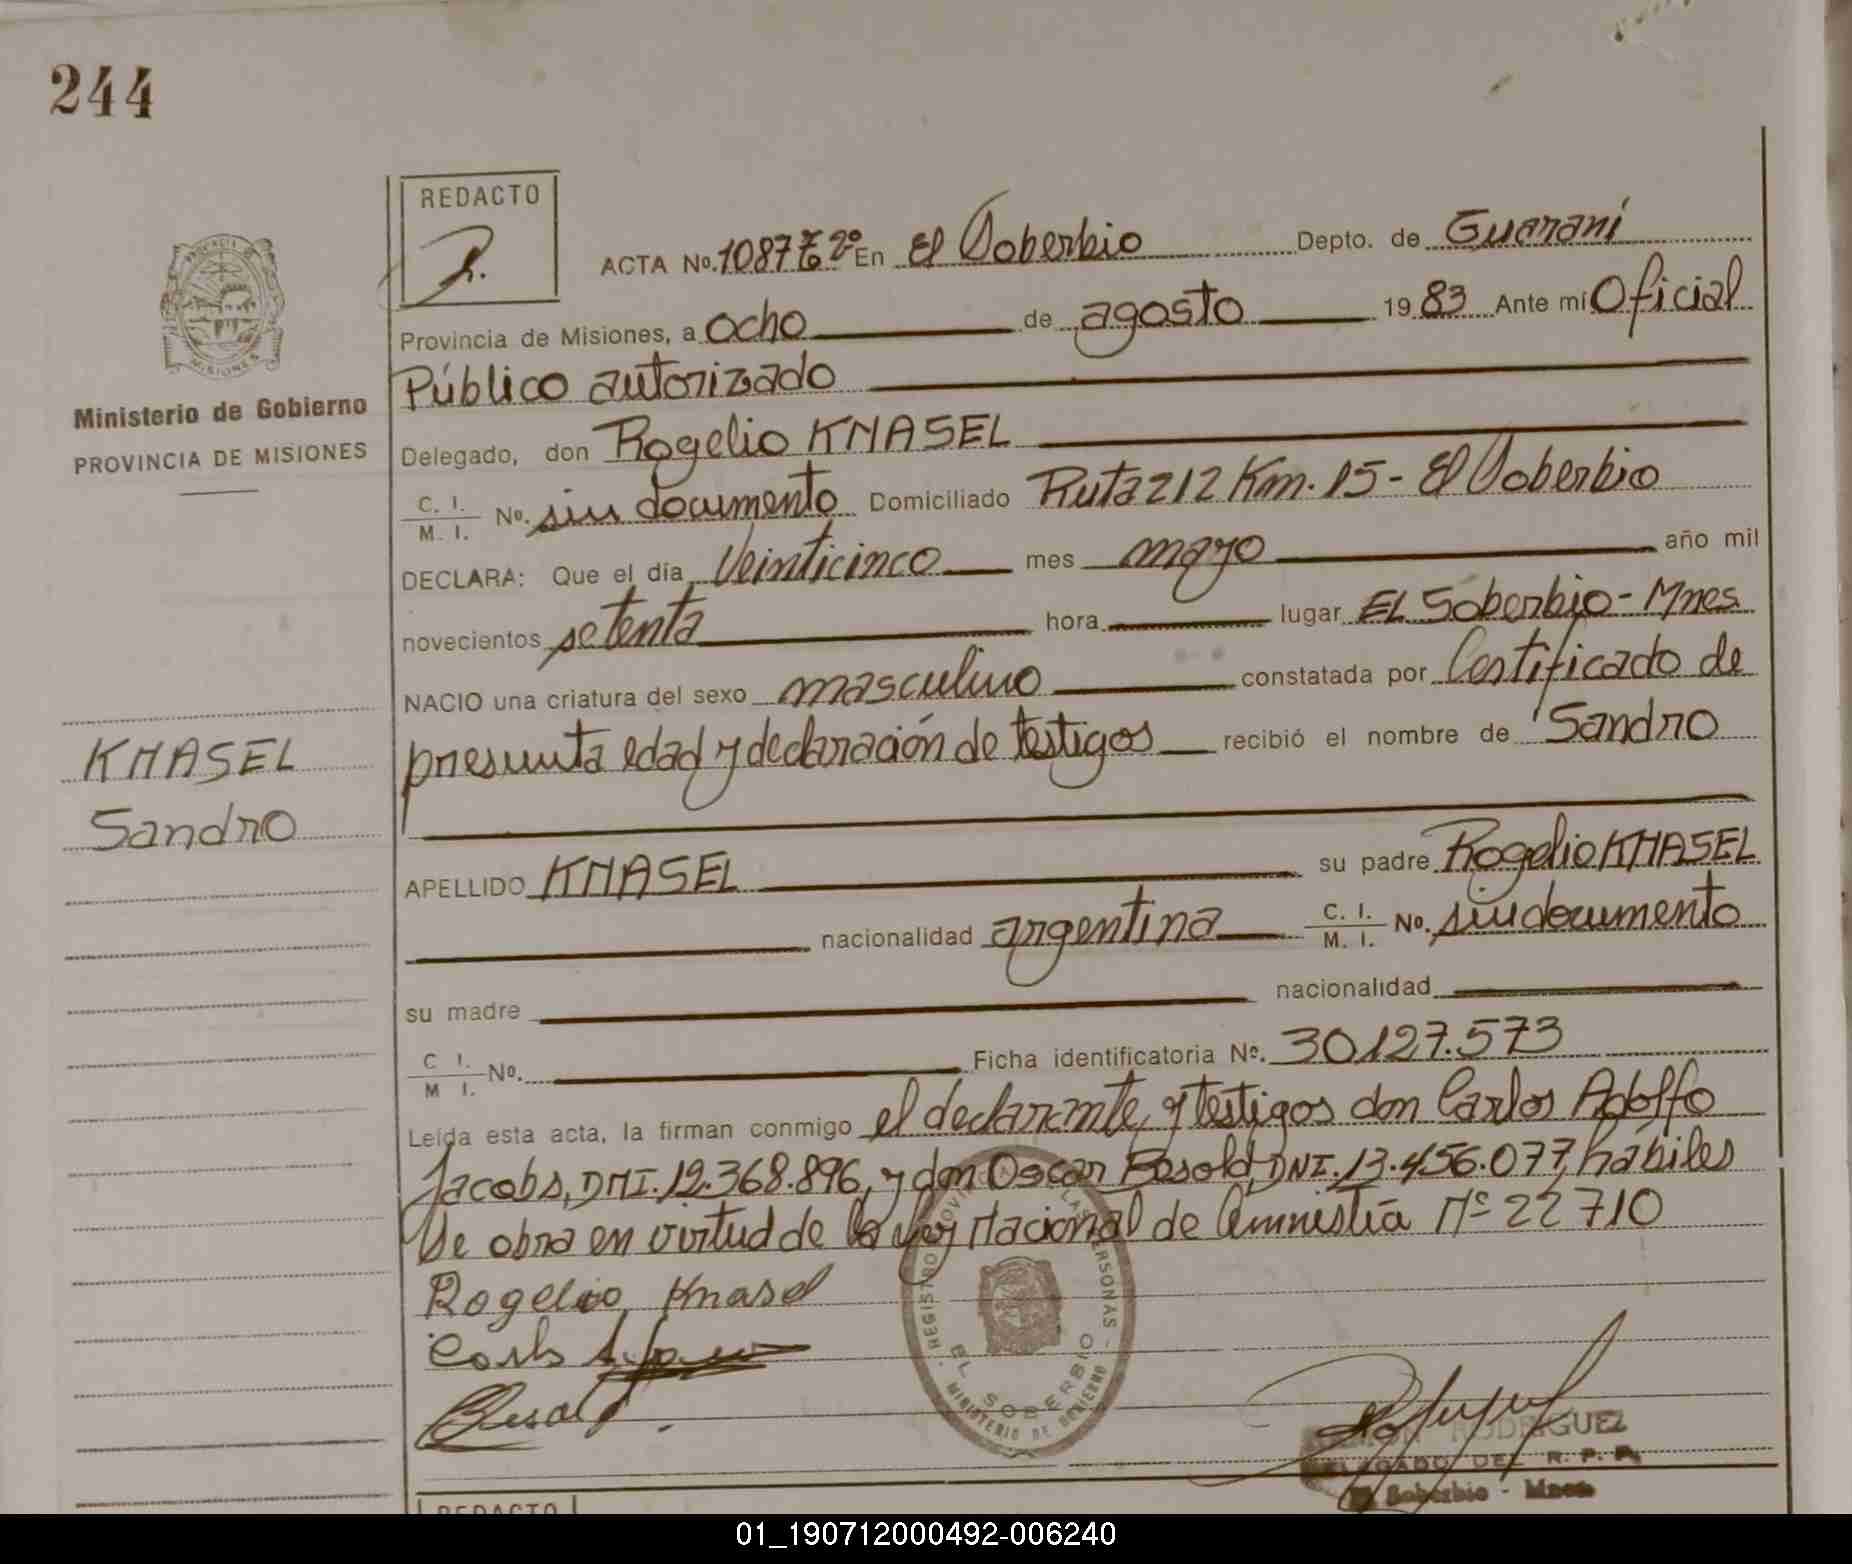 244
REDACTO
ACTA No. 1087 Tº 2º En El Soberbio Depto. de Guaraní
Provincia de Misiones, a ocho de agosto 1983 Ante mí Oficial
Público autorizado
Ministerio de Gobierno
PROVINCIA DE MISIONES
Delegado, don Rogelio KNASEL
C. I.
M. I. No. sin documento Domiciliado Ruta 212 Km. 15 - El Soberbio
DECLARA: Que el día Veinticinco mes mayo año mil
novecientos setenta hora lugar EL Soberbio - Mnes
NACIO una criatura del sexo masculino constatada por Certificado de
presunta edad y declaración de testigos recibió el nombre de Sandro
KNASEL
Sandro
APELLIDO KNASEL su padre Rogelio KNASEL
nacionalidad argentina C. I. M. I. No. sin documento
su madre nacionalidad
C I. M I. No. Ficha identificatoria No. 30.127.573
Leída esta acta, la firman conmigo el declarante y testigos don Carlos Adolfo
Jacobs, DNI. 12.368.896, y don Oscar Besold, DNI. 13.456.077, hábiles
Se obra en virtud de la Ley Nacional de Amnistía Nº 22710
Rogelio Knasel
REGISTRO PROVINCIAL DE LAS PERSONAS - MINISTERIO DE GOBIERNO -
EL SOBERBIO
RODRIGUEZ
DELEGADO DEL R. P. P.
El Soberbio - Mnes
REDACTO
01_190712000492-006240